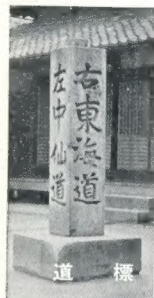 右東海道
左中仙道
道標